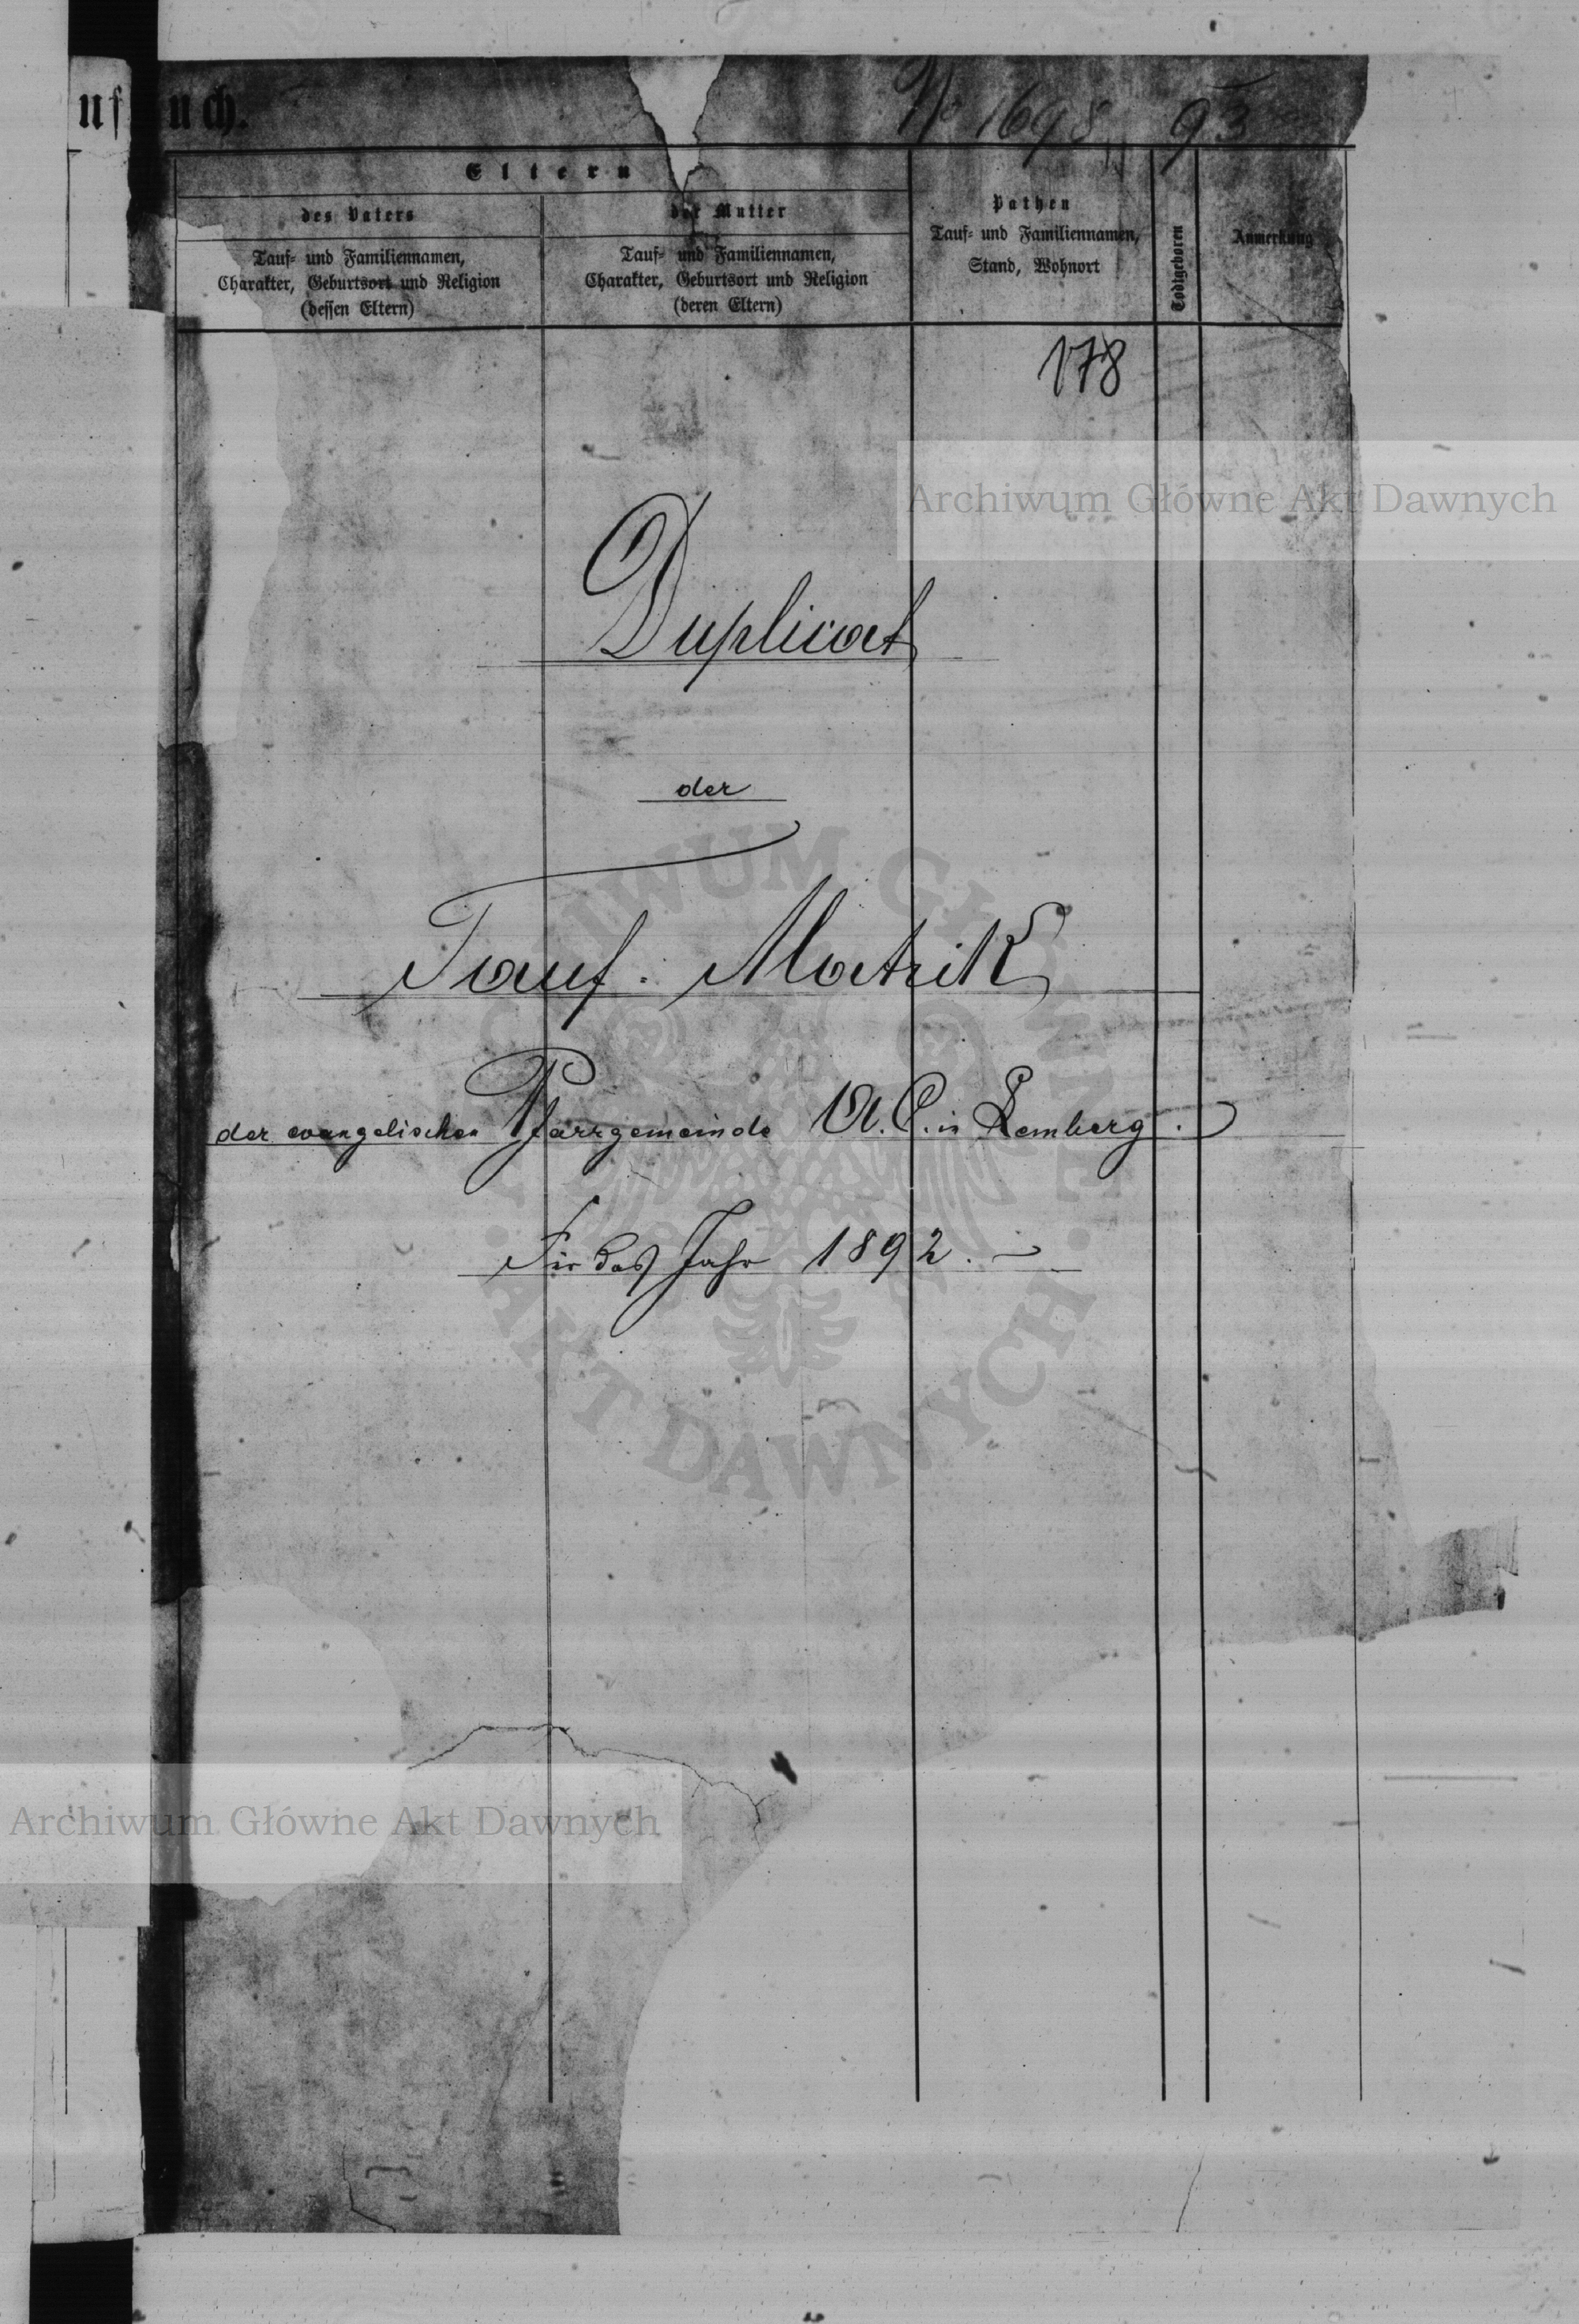 uf uch.
No 1698 93
Eltern
des Vaters
der Mutter
Pathen
Tauf- und Familiennamen,
Charakter, Geburtsort und Religion
(dessen Eltern)
Tauf- und Familiennamen,
Charakter, Geburtsort und Religion
(deren Eltern)
Tauf- und Familiennamen,
Stand, Wohnort
Todtgeboren
Anmerkung
178
Archiwum Główne Akt Dawnych
Duplicat
der
Tauf-Matrik
der evangelischen Pfarrgemeinde A.C. in Lemberg.
Für das Jahr 1892.
ARCHIWUM GŁÓWNE
· AKT DAWNYCH ·
Archiwum Główne Akt Dawnych